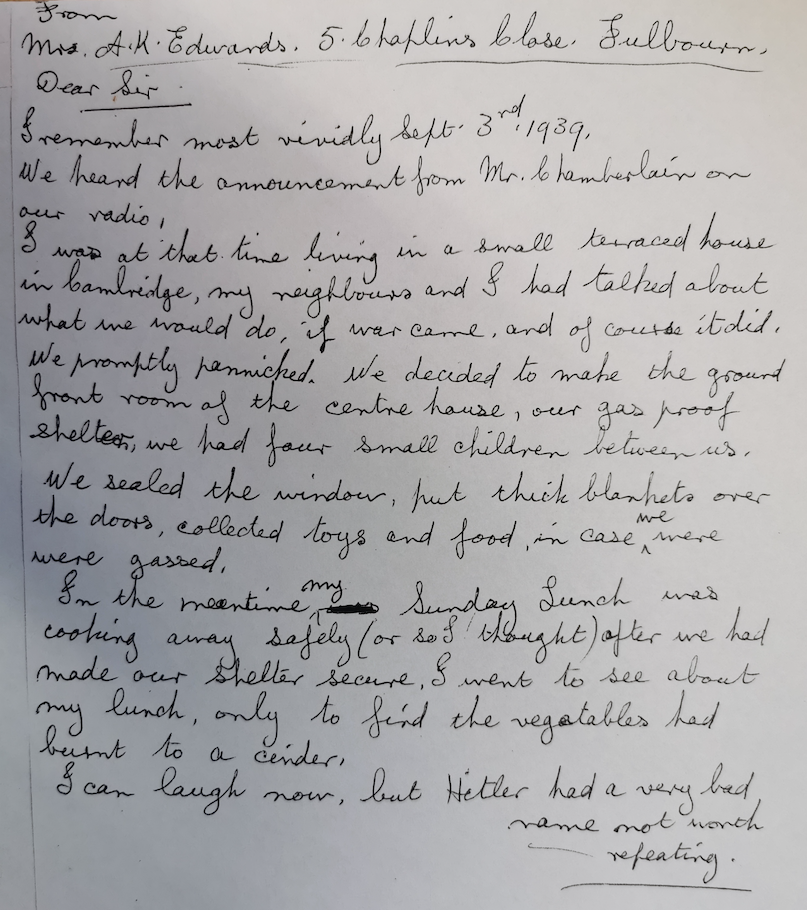 From
Mrs. A.K. Edwards. 5. Chaplins Close. Fulbourn.
Dear Sir.
I remember most vividly Sept. 3rd. 1939.
We heard the announcement from Mr. Chamberlain on
our radio,
I was at that time living in a small terraced house
in Cambridge, my neighbours and I had talked about
what we would do, if war came, and of course it did.
We promptly pannicked. We decided to make the ground
front room of the centre house, our gas proof
shelter, we had four small children between us.
We sealed the window, put thick blankets over
the doors, collected toys and food, in case we were
were gassed,
In the meantime, my Sunday Lunch was
cooking away safely (or so I thought) after we had
made our shelter secure, I went to see about
my lunch, only to find the vegetables had
burnt to a cinder,
I can laugh now, but Hitler had a very bad
name not worth
repeating.